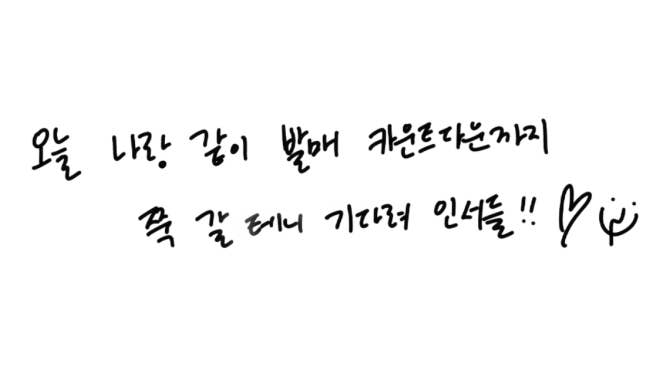 오늘 나랑 같이 발매 카운트다운까지
쭉 갈 테니 기다려 인서들!!